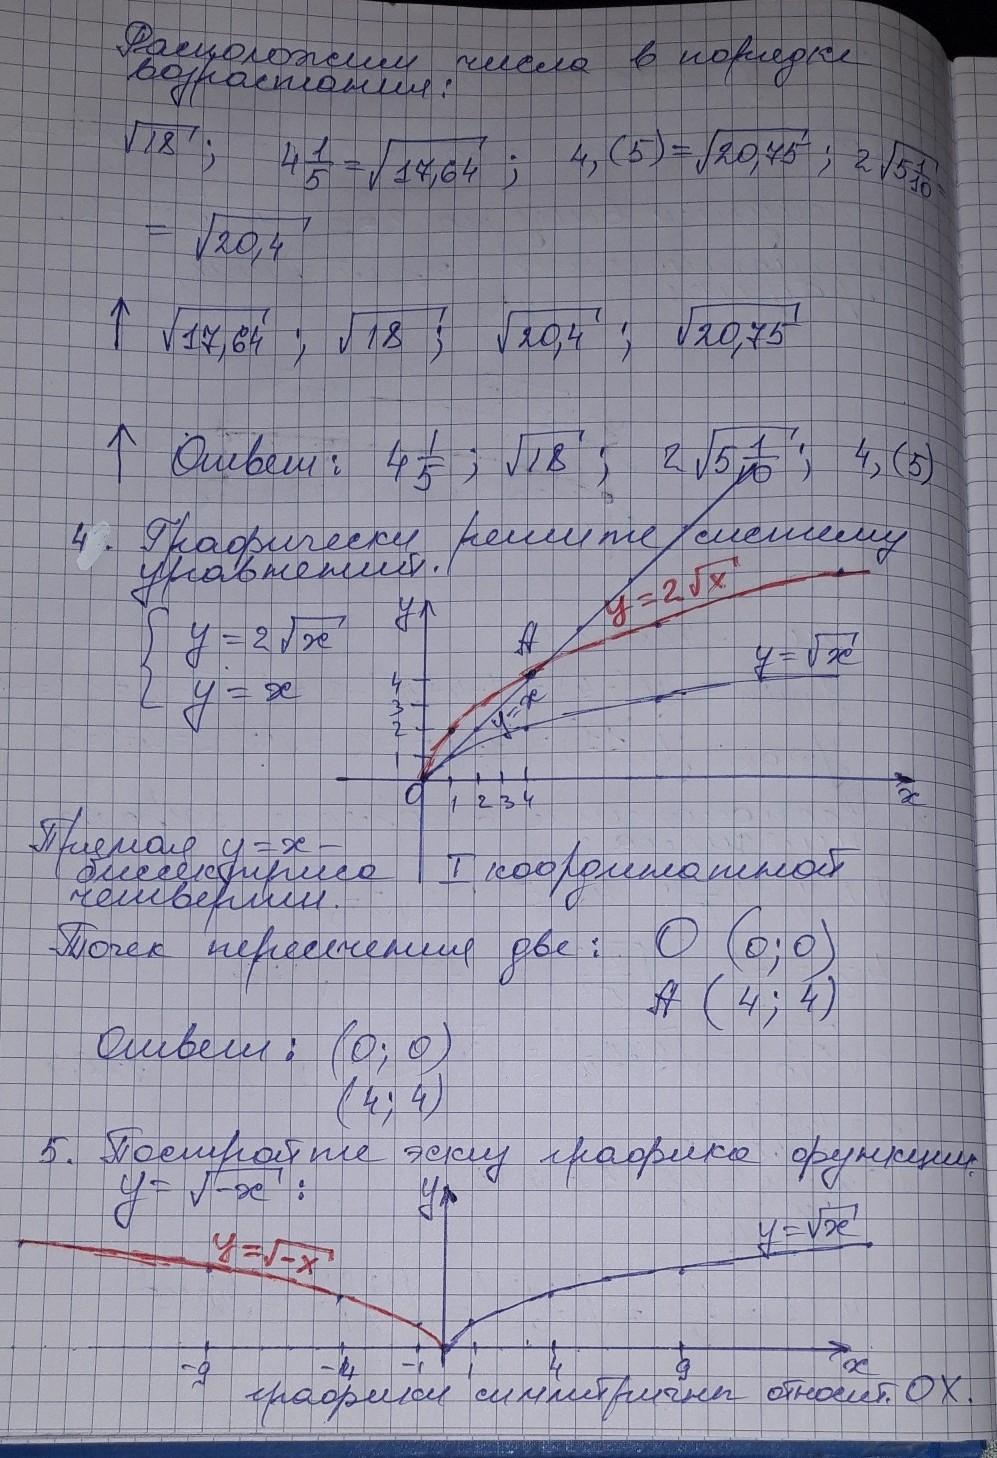 Расположим числа в порядке
возрастания:
√18; 4 1/5 = √17,64; 4,(5) = √20,75; 2√5 1/10 =
= √20,4
↑ √17,64; √18; √20,4; √20,75
↑ Ответ: 4 1/5; √18; 2√5 1/10; 4,(5)
4. Графически решите систему
уравнений.
y = 2√x
y = x
y
y = 2√x
A
y = √x
y = x
4
3
2
1
0 1 2 3 4 x
Прямая y = x –
биссектриса I координатной
четверти.
Точек пересечения две: O (0; 0)
A (4; 4)
Ответ: (0; 0)
(4; 4)
5. Постройте эскиз графика функции
y = √-x :
y
y = √-x
y = √x
-9 -4 -1 1 4 9 x
графики симметричны относит. OX.